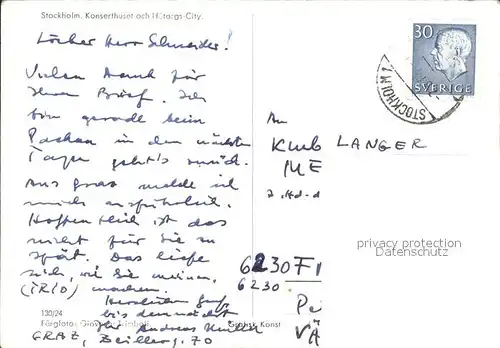 Stockholm. Konserthuset och Hötorgs-City.
Lieber Herr Schneider!
Vielen Dank für
Ihren Brief. Ich
bin gerade beim
Packen in den nächsten
Tagen geht's zurück.
Aus Graz melde ich
mich ausführlich.
Hoffentlich ist das
nicht für Sie zu
spät. Das ließe
sich, wie Sie meinen,
(TRIO) machen.
Herzlichen Gruß
bis demnächst
Ihr Andreas
GRAZ, 70
130/24
Färgfoto: Giovanni Trimboli
Grafisk Konst
30
SVERIGE
STOCKHOLM
An
Klub LANGER
ME
z. Hd. d
6230 F
6230
privacy protection
Datenschutz